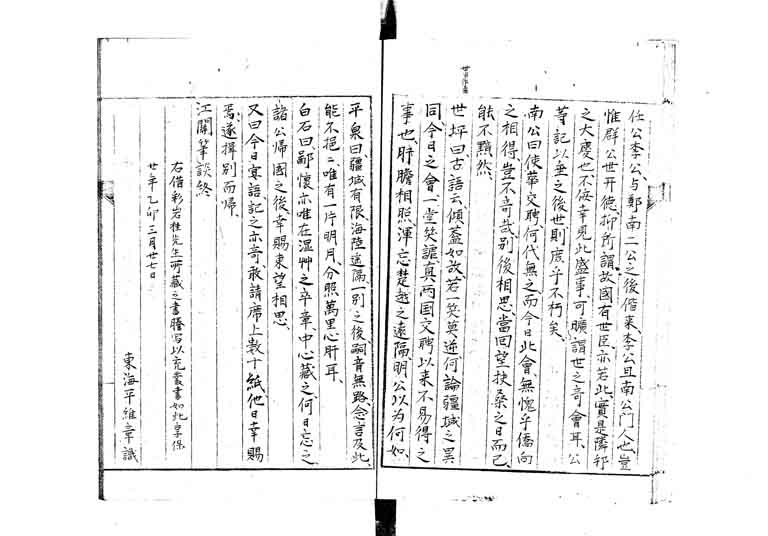 任公李公、与鄭南二公之後偕来、李公且南公門人也、豈
惟群公世开徳、抑所謂故國有世臣亦若此、實是隣邦
之大慶也、不佞幸見此盛事、可曠謂世之奇會耳、公
等記以垂之後世則庶乎不朽矣、
南公曰、使華交聘、何代無之、而今日此會、無愧乎僑向
之相得、豈不奇哉、別後相思、當回望扶桑之日而已、
能不黯然、
世坪曰、古語云、傾蓋如故、若一笑莫逆、何論疆域之異
同、今日之會、一堂笑謔、真兩国交聘以来不易得之
事也、肝膽相照、渾忘楚越之遠隔、明公以為何如、
平泉曰、疆域有限、海陸遙隔、一別之後、嗣音無路、念言及此、
能不悒〻、唯有一片明月、分照萬里心肝耳、
白石曰、鄙懷亦唯在湿艸之卒章、中心藏之、何日忘之、
諸公帰國之後、幸賜東望相思、
又曰、今日寘語、記之亦奇、敢請席上數十紙、他日幸賜
焉、遂揖別而帰、
江關筆談終
右借彩岩桂先生所藏之書謄写以充叢書如此享保
廿年乙卯三月廿七日
東海平維章識